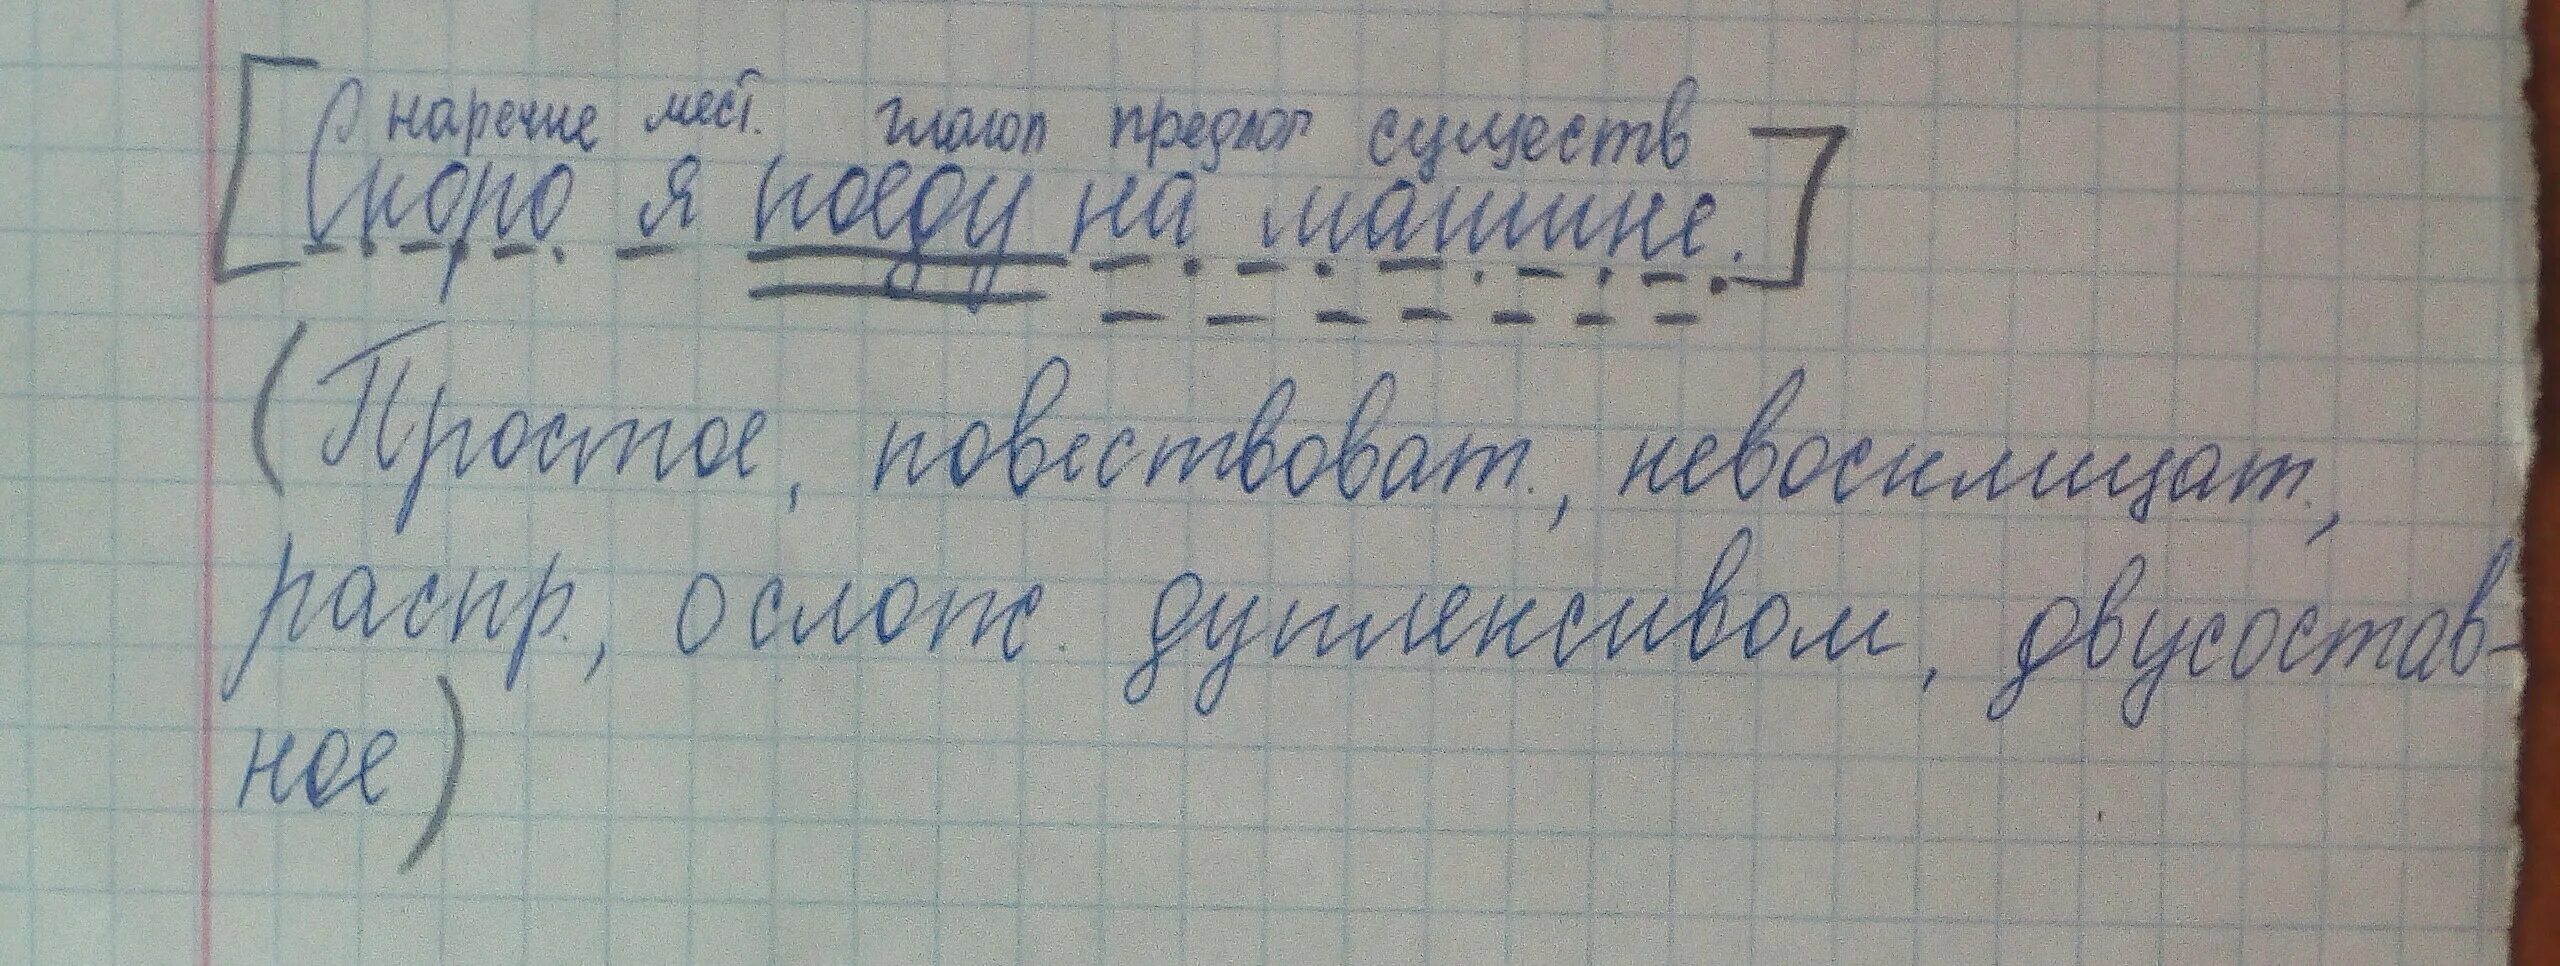 наречие мест. глагол предлог существ
[Скоро я поеду на машине.]
(Простое, повествоват., невосклицат.,
распр., ослож. дуплексивом, двусостав-
ное)